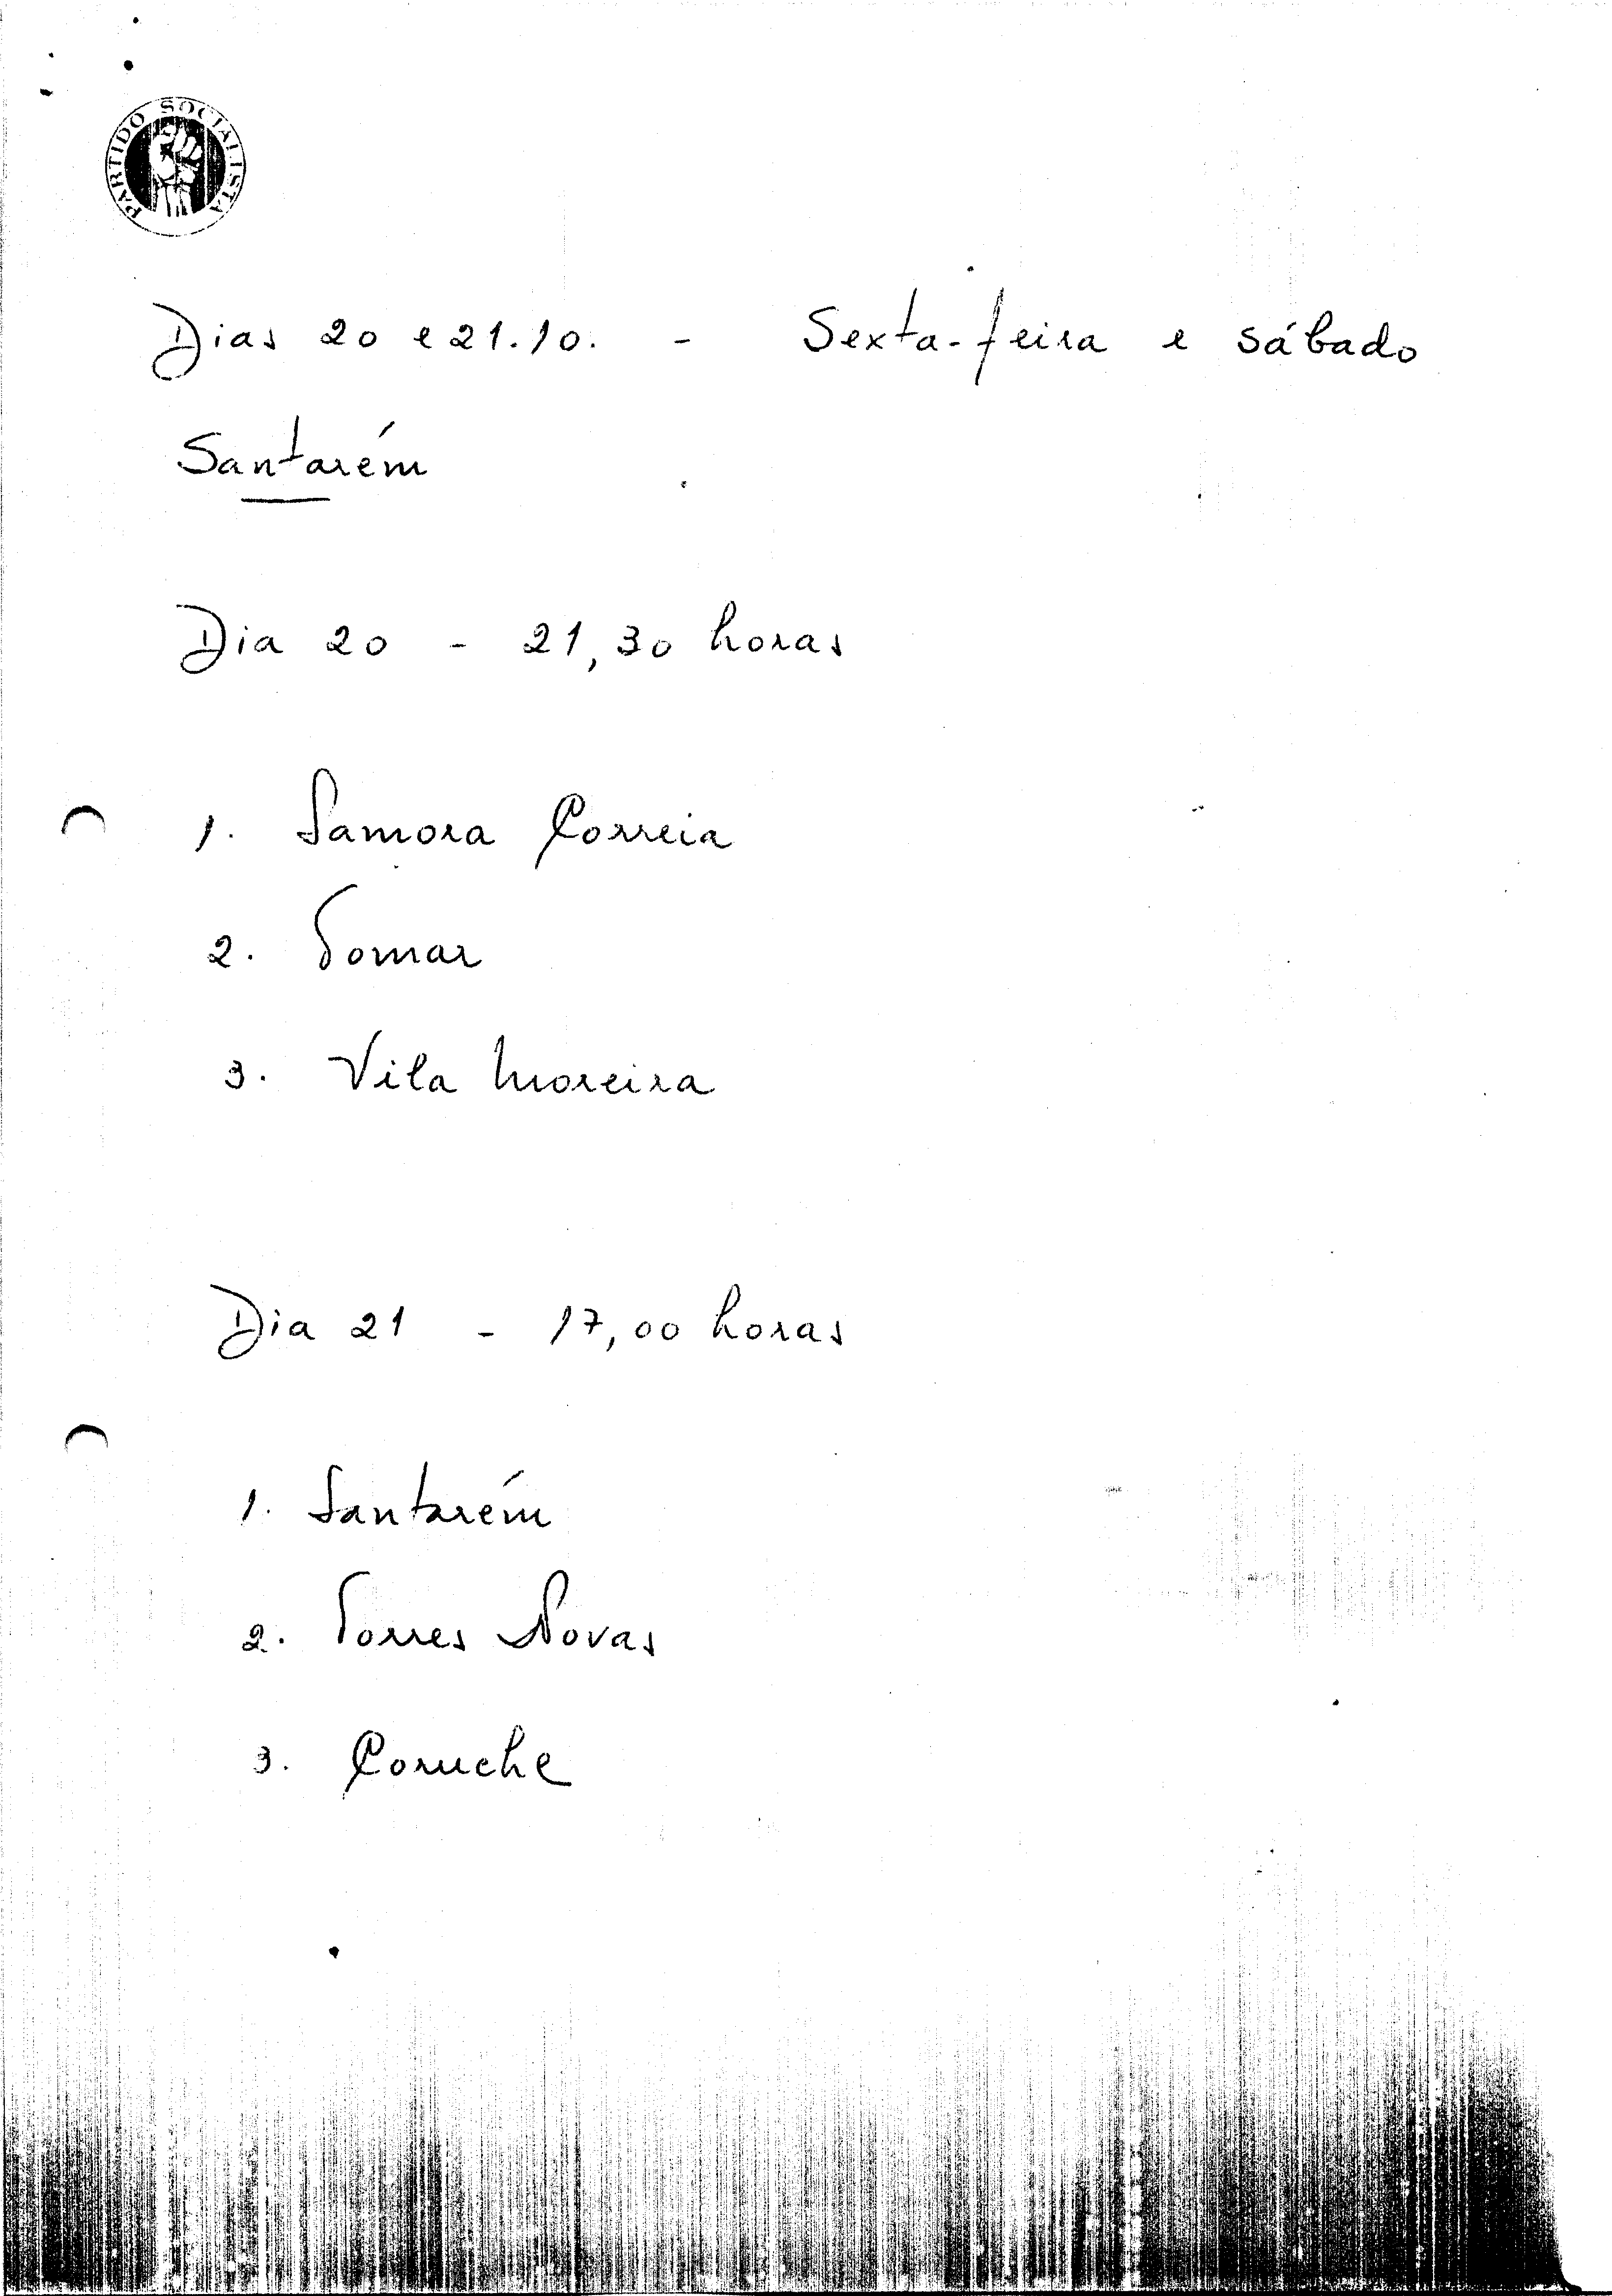 PARTIDO SOCIALISTA
Dias 20 e 21.10. - Sexta-feira e sábado
Santarém
Dia 20 - 21,30 horas
1. Samora Correia
2. Tomar
3. Vila Moreira
Dia 21 - 17,00 horas
1. Santarém
2. Torres Novas
3. Coruche